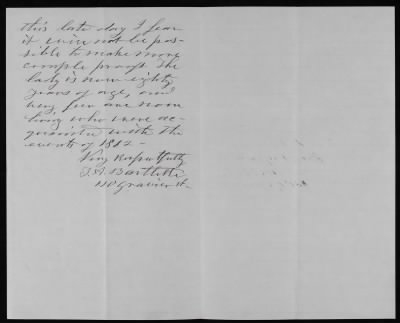 this late day I fear
it will not be pos-
sible to make more
comple proof. The
lady is now eighty
years of age, and
very few are now
living who were ac-
quainted with the
events of 1812 -
Very Respectfully
T. A. Bartlette
Gravier St.